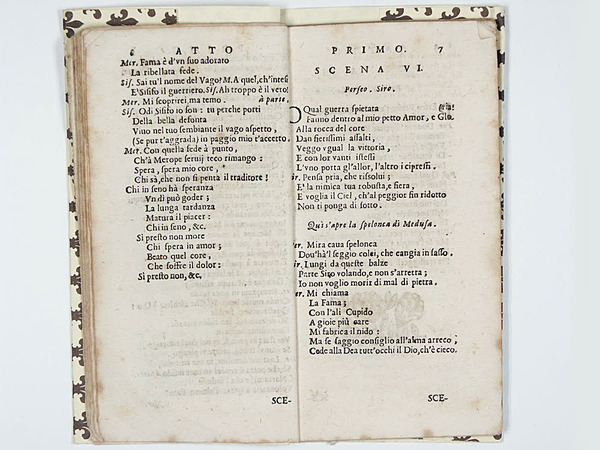 6 ATTO
Mer. Fama è d'vn suo adorato
La ribellata fede.
Sis. Sai tu'l nome del Vago? M. A quel, ch'intesi
E' Sisifo il guerriero. Sis. Ah troppo è il vero!
Mer. Mi scoprirei, ma temo. à parte.
Sis. Odi Sisifo io son: tu perche porti
Della bella defonta
Viuo nel tuo sembiante il vago aspetto,
(Se pur t'aggrada) in paggio mio t'accetto.
Mer. Con quella fede à punto,
Ch'à Merope seruij teco rimango:
Spera, spera mio core,
Chi sà, che non si penta il traditore!
Chi in seno hà speranza
Vn dì può goder;
La lunga tardanza
Matura il piacer:
Chi in seno, &c.
Si presto non more
Chi spera in amor;
Beato quel core,
Che soffre il dolor:
Si presto non, &c.
SCE-
PRIMO. 7
SCENA VI.
Perseo. Siro.
QVal guerra spietata
Fanno dentro al mio petto Amor, e Glo-
Alla rocca del core
Dan fierissimi assalti,
Veggo vgual la vittoria,
E con lor vanti istessi
L'vno porta gl'allor, l'altro i cipressi.
Pensa pria, che risolui;
E' la nimica tua robusta, e fiera,
E voglia il Ciel, ch'al peggior fin ridotto
Non ti ponga di sotto.
Quì s'apre la spelonca di Medusa.
er. Mira caua spelonca
Dou'hà'l seggio colei, che cangia in sasso.
ir. Lungi da queste balze
Parte Siro volando, e non s'arretra;
Io non voglio morir di mal di pietra.
er. Mi chiama
La Fama;
Con l'ali Cupido
A gioie più care
Mi fabrica il nido:
Ma se saggio consiglio all'alma arreco,
Cede alla Dea tutt'occhi il Dio, ch'è cieco.
SCE-